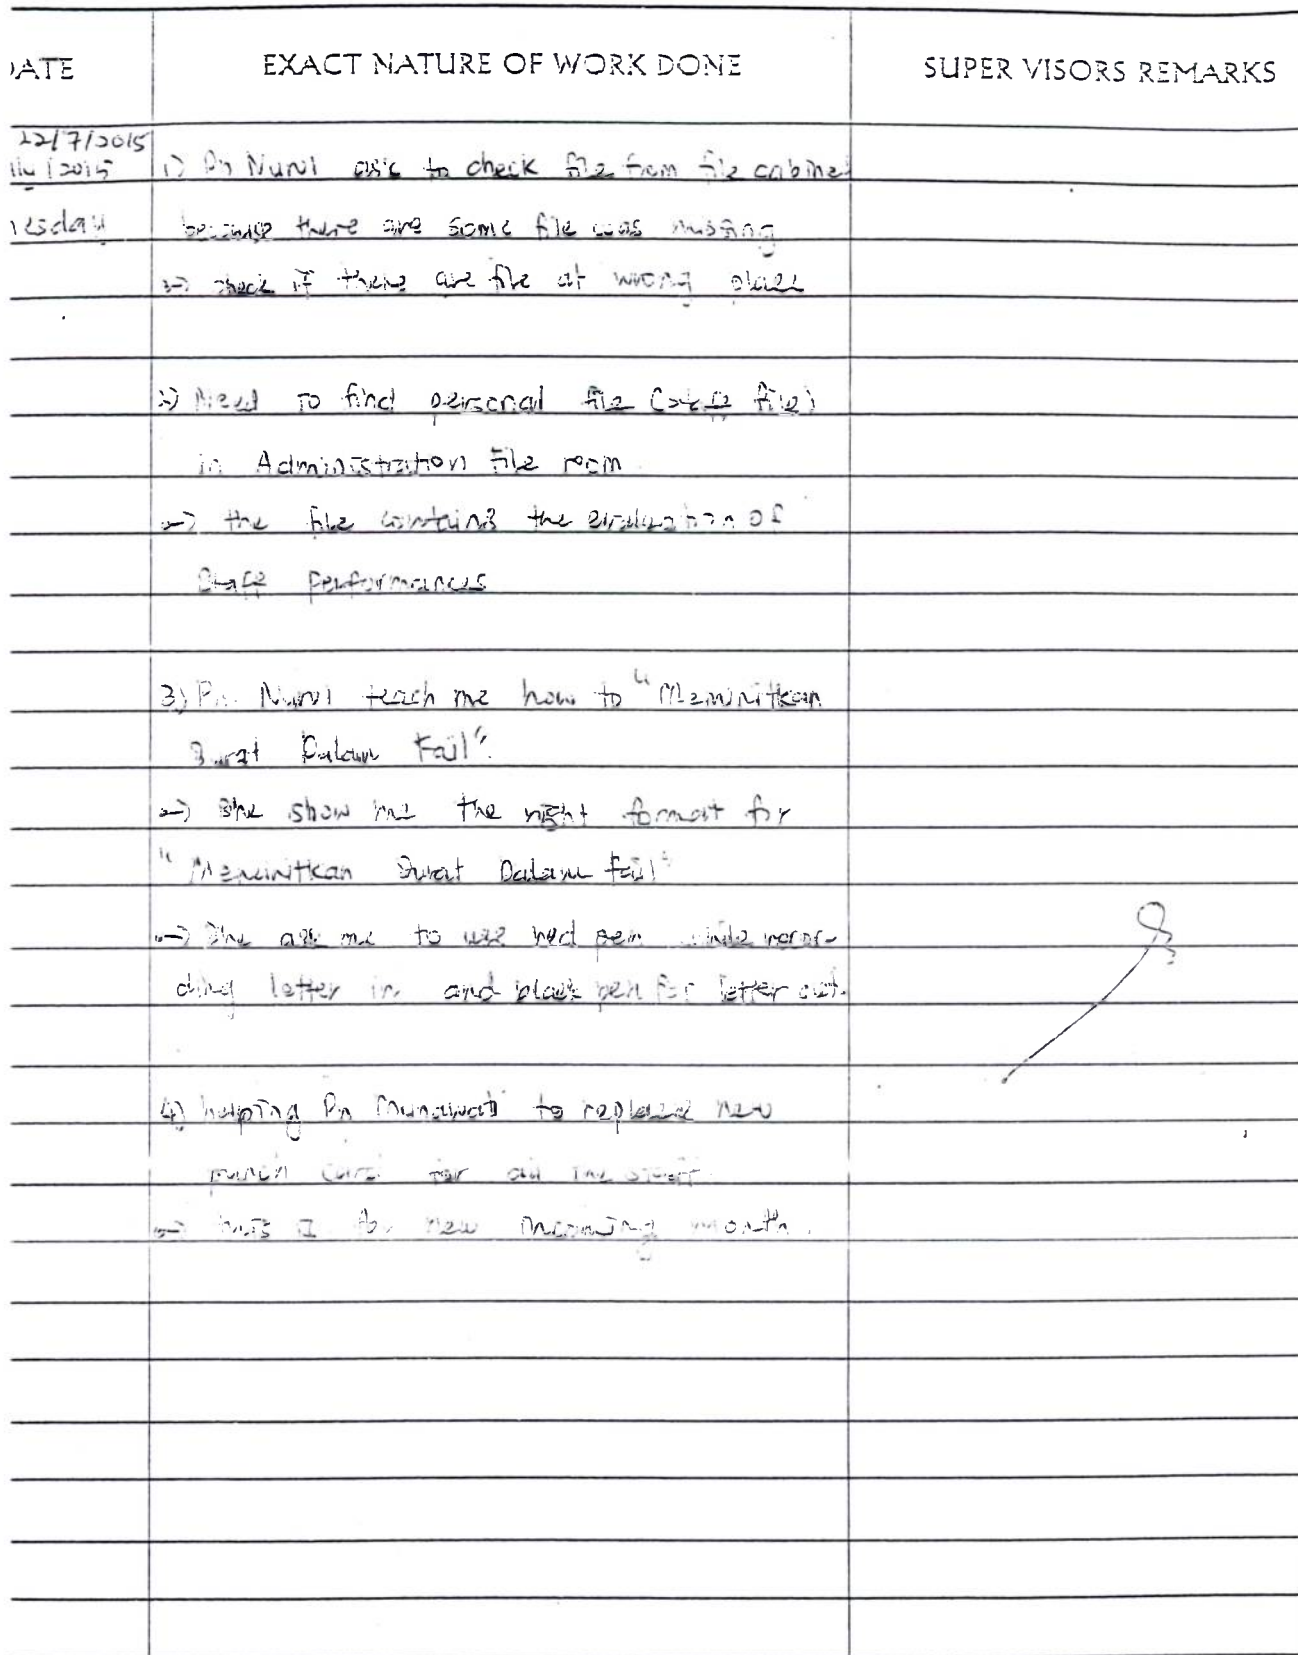 DATE EXACT NATURE OF WORK DONE SUPER VISORS REMARKS
22/7/2015
2015 1) Pn Nurul ask to check file from file cabinet
nesday because there are some file was missing
→ check if there are file at wrong place
2) Need to find personal file (staff file)
in Administration file room
→ the file contains the evaluation of
Staff Performances
3) Pn Nurul teach me how to "Meminitkan
Surat Dalam Fail".
→ She show me the right format for
"Meminitkan Surat Dalam Fail"
→ She ask me to use red pen while recor-
ding letter in and black pen for letter out.
4) helping Pn Munawati to replace new
punch card for all the staff
→ for new incoming month.